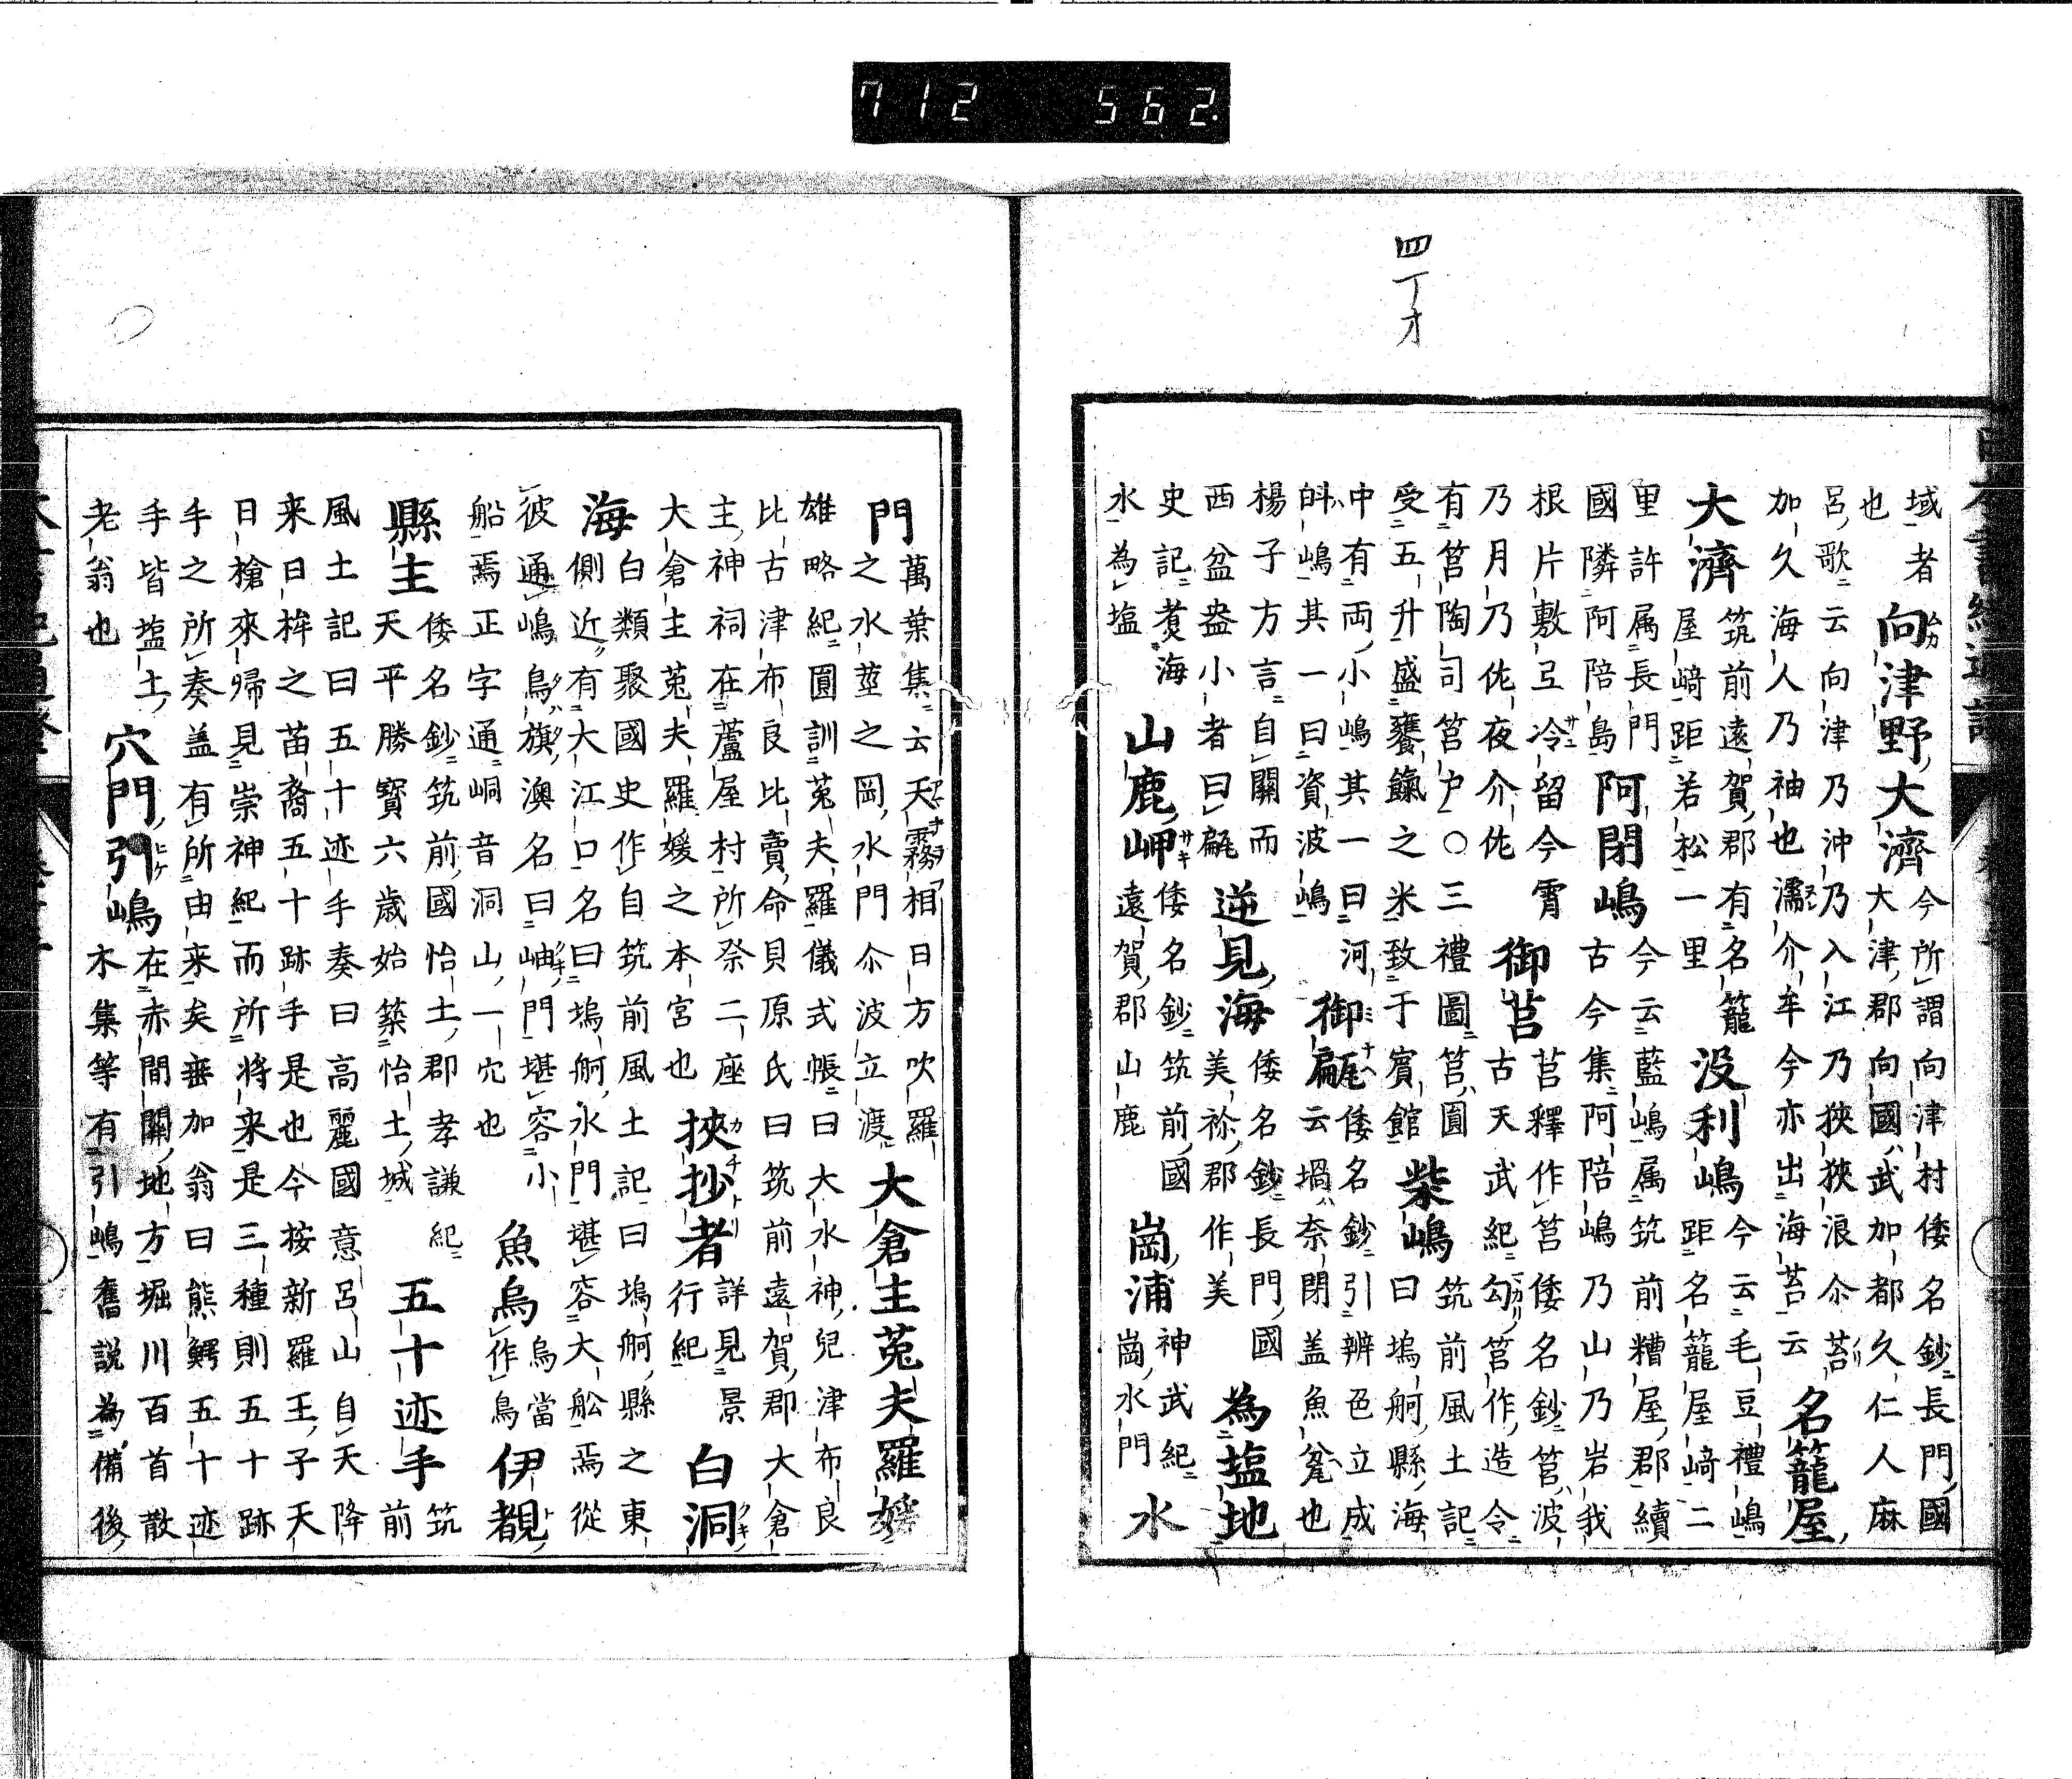 712 562
四丁オ
域者
也
向津野大濟
今所謂向津村倭名鈔長門國
大津郡向國武加都久仁人麻
呂歌云向津乃沖乃入江乃狹狹浪尒苔
加久海人乃袖也濡介牟今亦出海苔云
名籠屋
大濟
筑前遠賀郡有名籠
屋﨑距若松一里
没利嶋
今云毛豆禮嶋
距名籠屋﨑二
里許属長門
國隣阿陪島
阿閉嶋
今云藍嶋属筑前糟屋郡續
古今集阿陪嶋乃山乃岩我
根片敷弖冷留今宵
乃月乃佐夜介佐
御莒
莒釋作筥倭名鈔筥波
古天武紀勾筥作造令
有筥陶司筥戸〇三禮圖筥圓
受五升盛饔餼之米致于賓館
柴嶋
筑前風土記
曰塢舸縣海
中有兩小嶋其一曰河
㪷嶋其一曰資波嶋
御甂
倭名鈔引辨色立成
云堝奈閉盖魚也
楊子方言自關而
西盆盎小者曰甂
逆見海
倭名鈔長門國
美祢郡作美
為塩地
史記煑海
水為塩
山鹿岬
倭名鈔筑前國
遠賀郡山鹿
崗浦
神武紀
崗水門
水
門
萬葉集云天霧相日方吹羅
之水莖之岡水門尒波立渡
大倉主菟夫羅媛
雄略紀圓訓菟夫羅儀式帳曰大水神兒津布良
比古津布良比賣命貝原氏曰筑前遠賀郡大倉
主神祠在蘆屋村所祭二座
大倉主菟夫羅媛之本宮也
挾抄者
詳見景
行紀
白洞
海
白類聚國史作自筑前風土記曰塢舸縣之東
側近有大江口名曰塢舸水門堪容大舩焉從
彼通嶋鳥旗澳名曰岫門堪容小
船焉正字通峒音洞山一穴也
魚烏
烏當
作鳥
伊覩
縣主
倭名鈔筑前國怡土郡孝謙紀
天平勝寶六歳始築怡土城
五十迹手
筑
前
風土記曰五十迹手奏曰高麗國意呂山自天降
来日桙之苗裔五十跡手是也今按新羅王子天
日槍來歸見崇神紀而所将来是三種則五十跡
手之所奏盖有所由来矣垂加翁曰熊鰐五十迹
手皆塩土
老翁也
穴門引嶋
在赤間關地方堀川百首散
木集等有引嶋舊説為備後